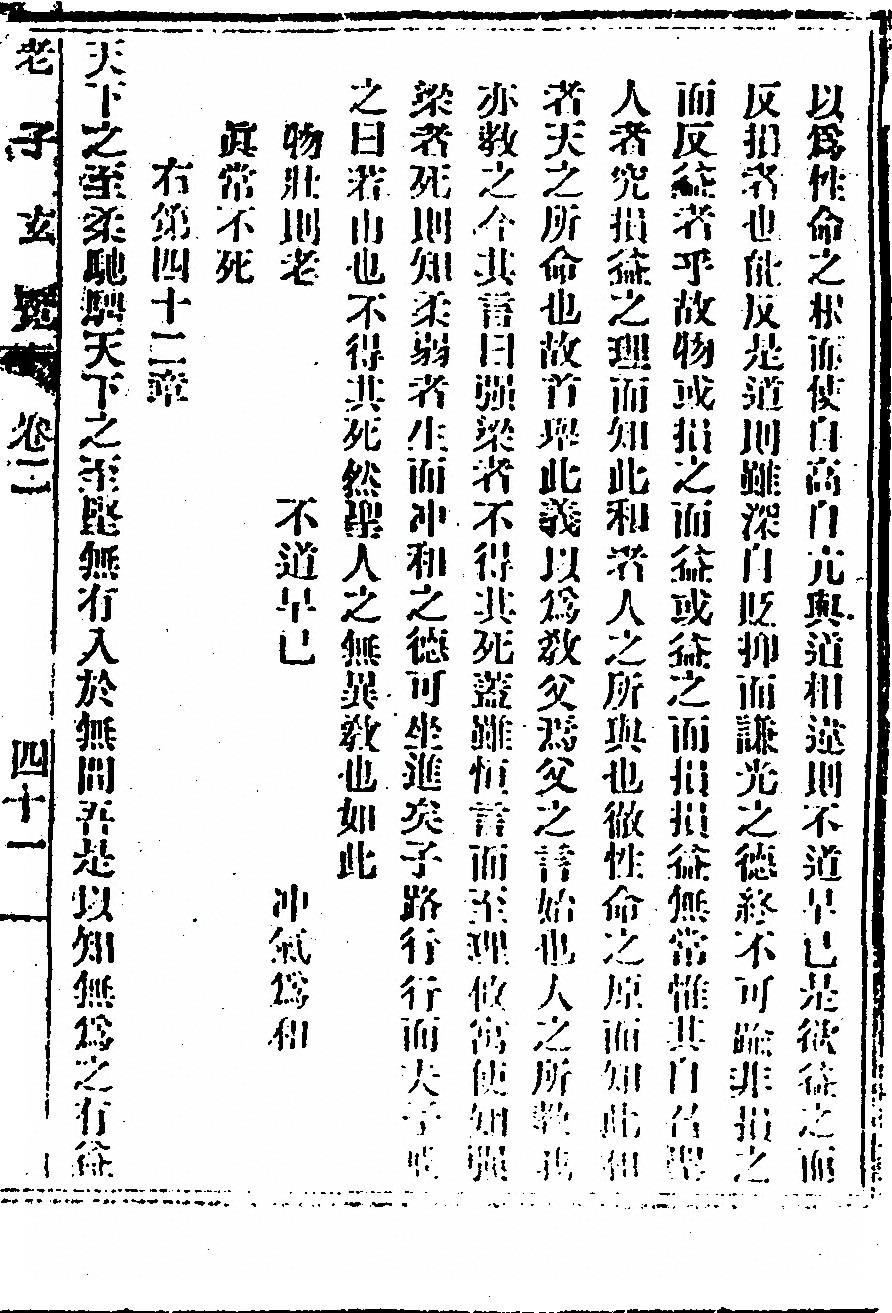 以爲性命之根而使自高自亢與道相違則不道早已是欲益之而
反損者也能反是道則雖深自貶抑而謙光之德終不可踰非損之
而反益者乎故物或損之而益或益之而損損益無常惟其自召聖
人者究損益之理而知此和者人之所與也徹性命之原而知此和
者天之所命也故首舉此義以爲敎父焉父之言始也人之所敎我
亦敎之今其言曰强梁者不得其死蓋雖恒言而至理攸寓使知强
梁者死則知柔弱者生而冲和之德可坐進矣子路行行而夫子
之曰若由也不得其死然聖人之無異敎也如此
物壯則老 不道早已 冲氣爲和
眞常不死
右第四十二章
天下之至柔馳騁天下之至堅無有入於無間吾是以知無爲之有益
老子玄覽 卷二 四十一